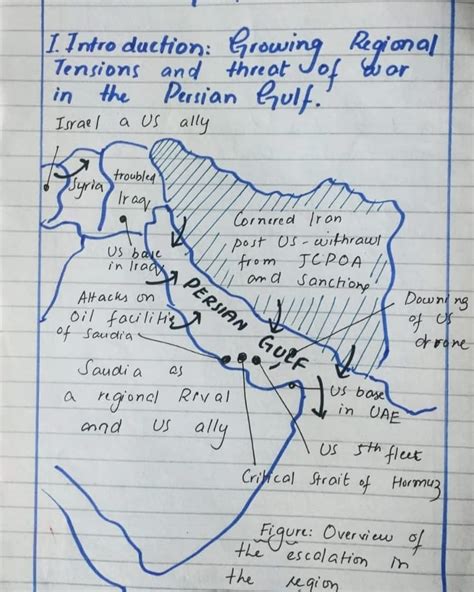 I. Introduction: Growing Regional
Tensions and threat of war
in the Persian Gulf.
Israel a US ally
Syria
troubled
Iraq
Cornered Iran
post US-withdrawl
from JCPOA
and Sanctions
US base
in Iraq
PERSIAN GULF
Attacks on
Oil facilities
of Saudia
Downing
of US
drone
Saudia as
a regional Rival
and US ally
US base
in UAE
US 5th fleet
Critical Strait of Hormuz
Figure: Overview of
the escalation in
the region